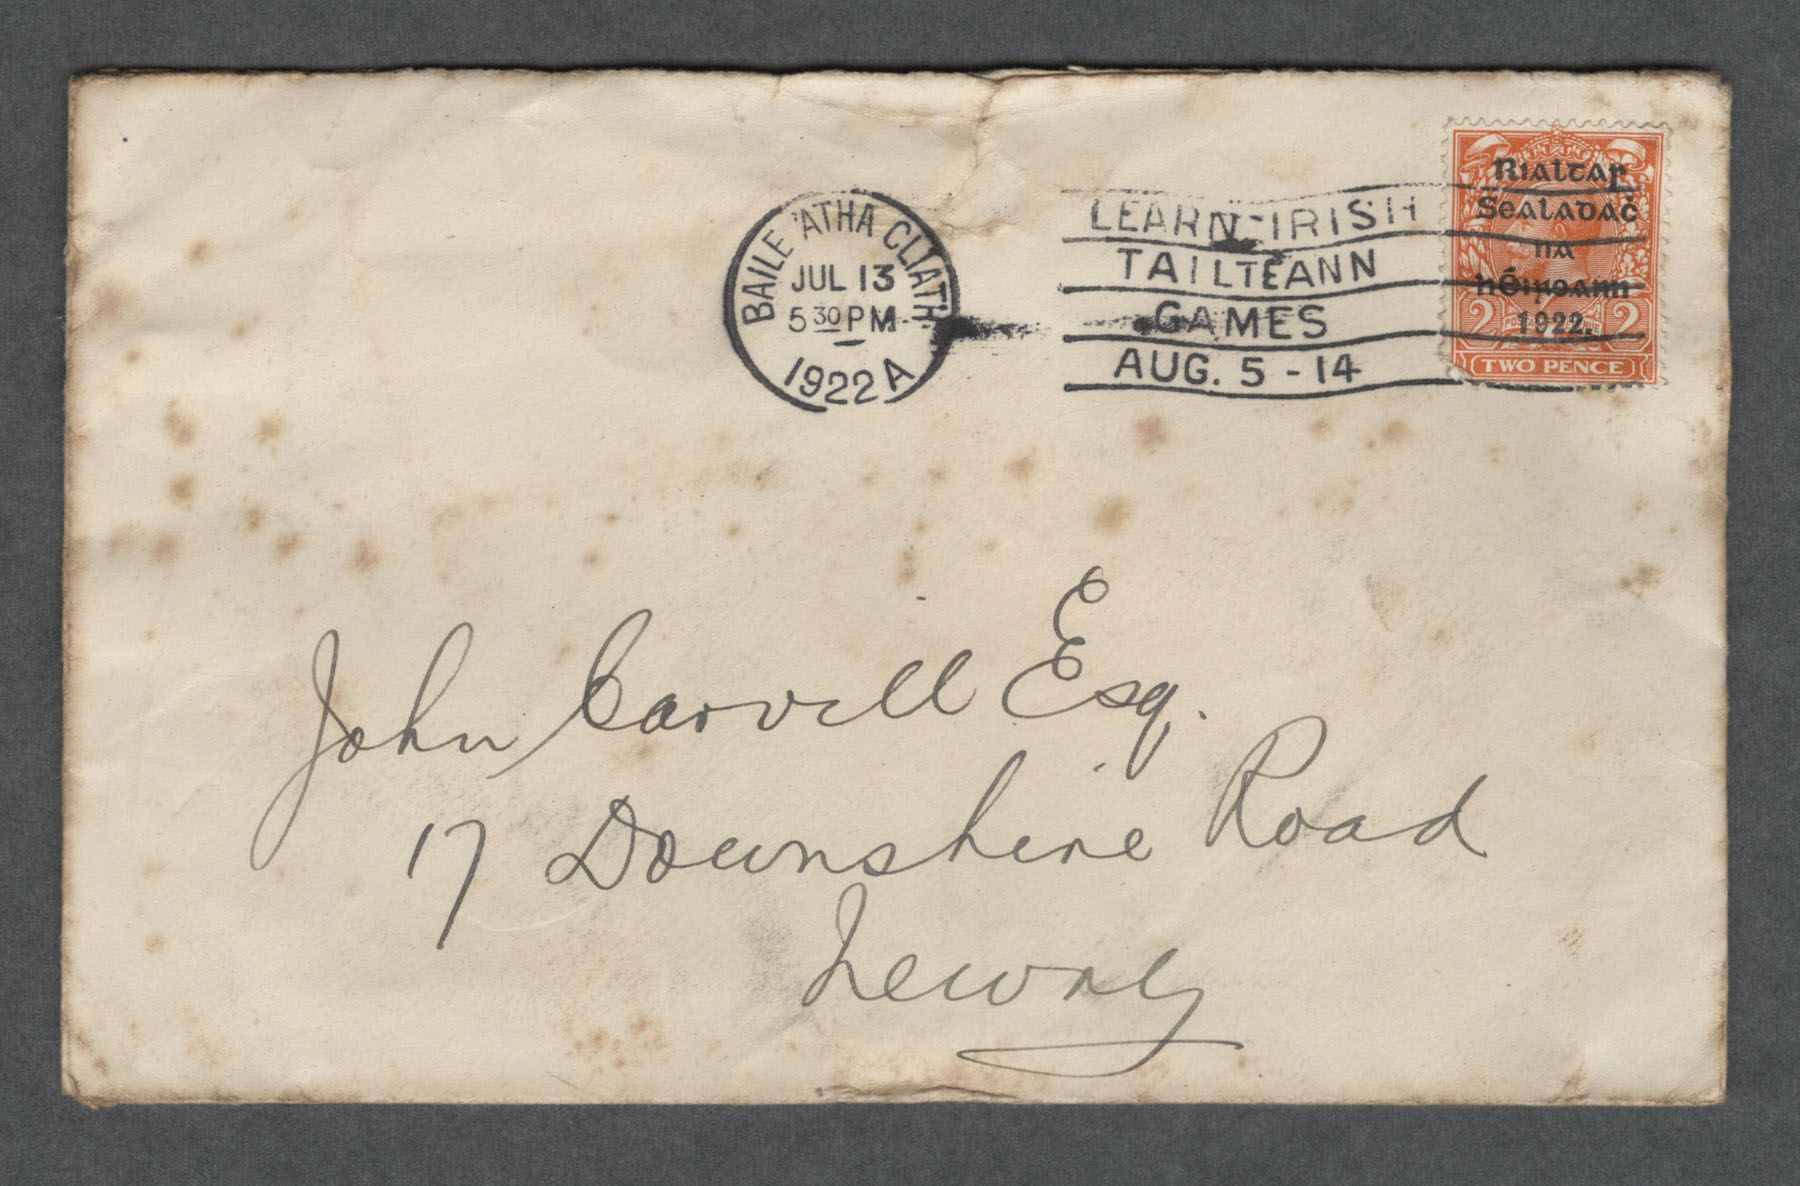 BAILE 'ATHA CLIATH
JUL 13
5 30 PM
1922 A
LEARN IRISH
TAILTEANN
GAMES
AUG. 5 - 14
Rialtaꞅ
Sealadaċ
na
hÉiꞃeann
1922.
2 2
TWO PENCE
John Carvill Esq.
17 Downshire Road
Newry